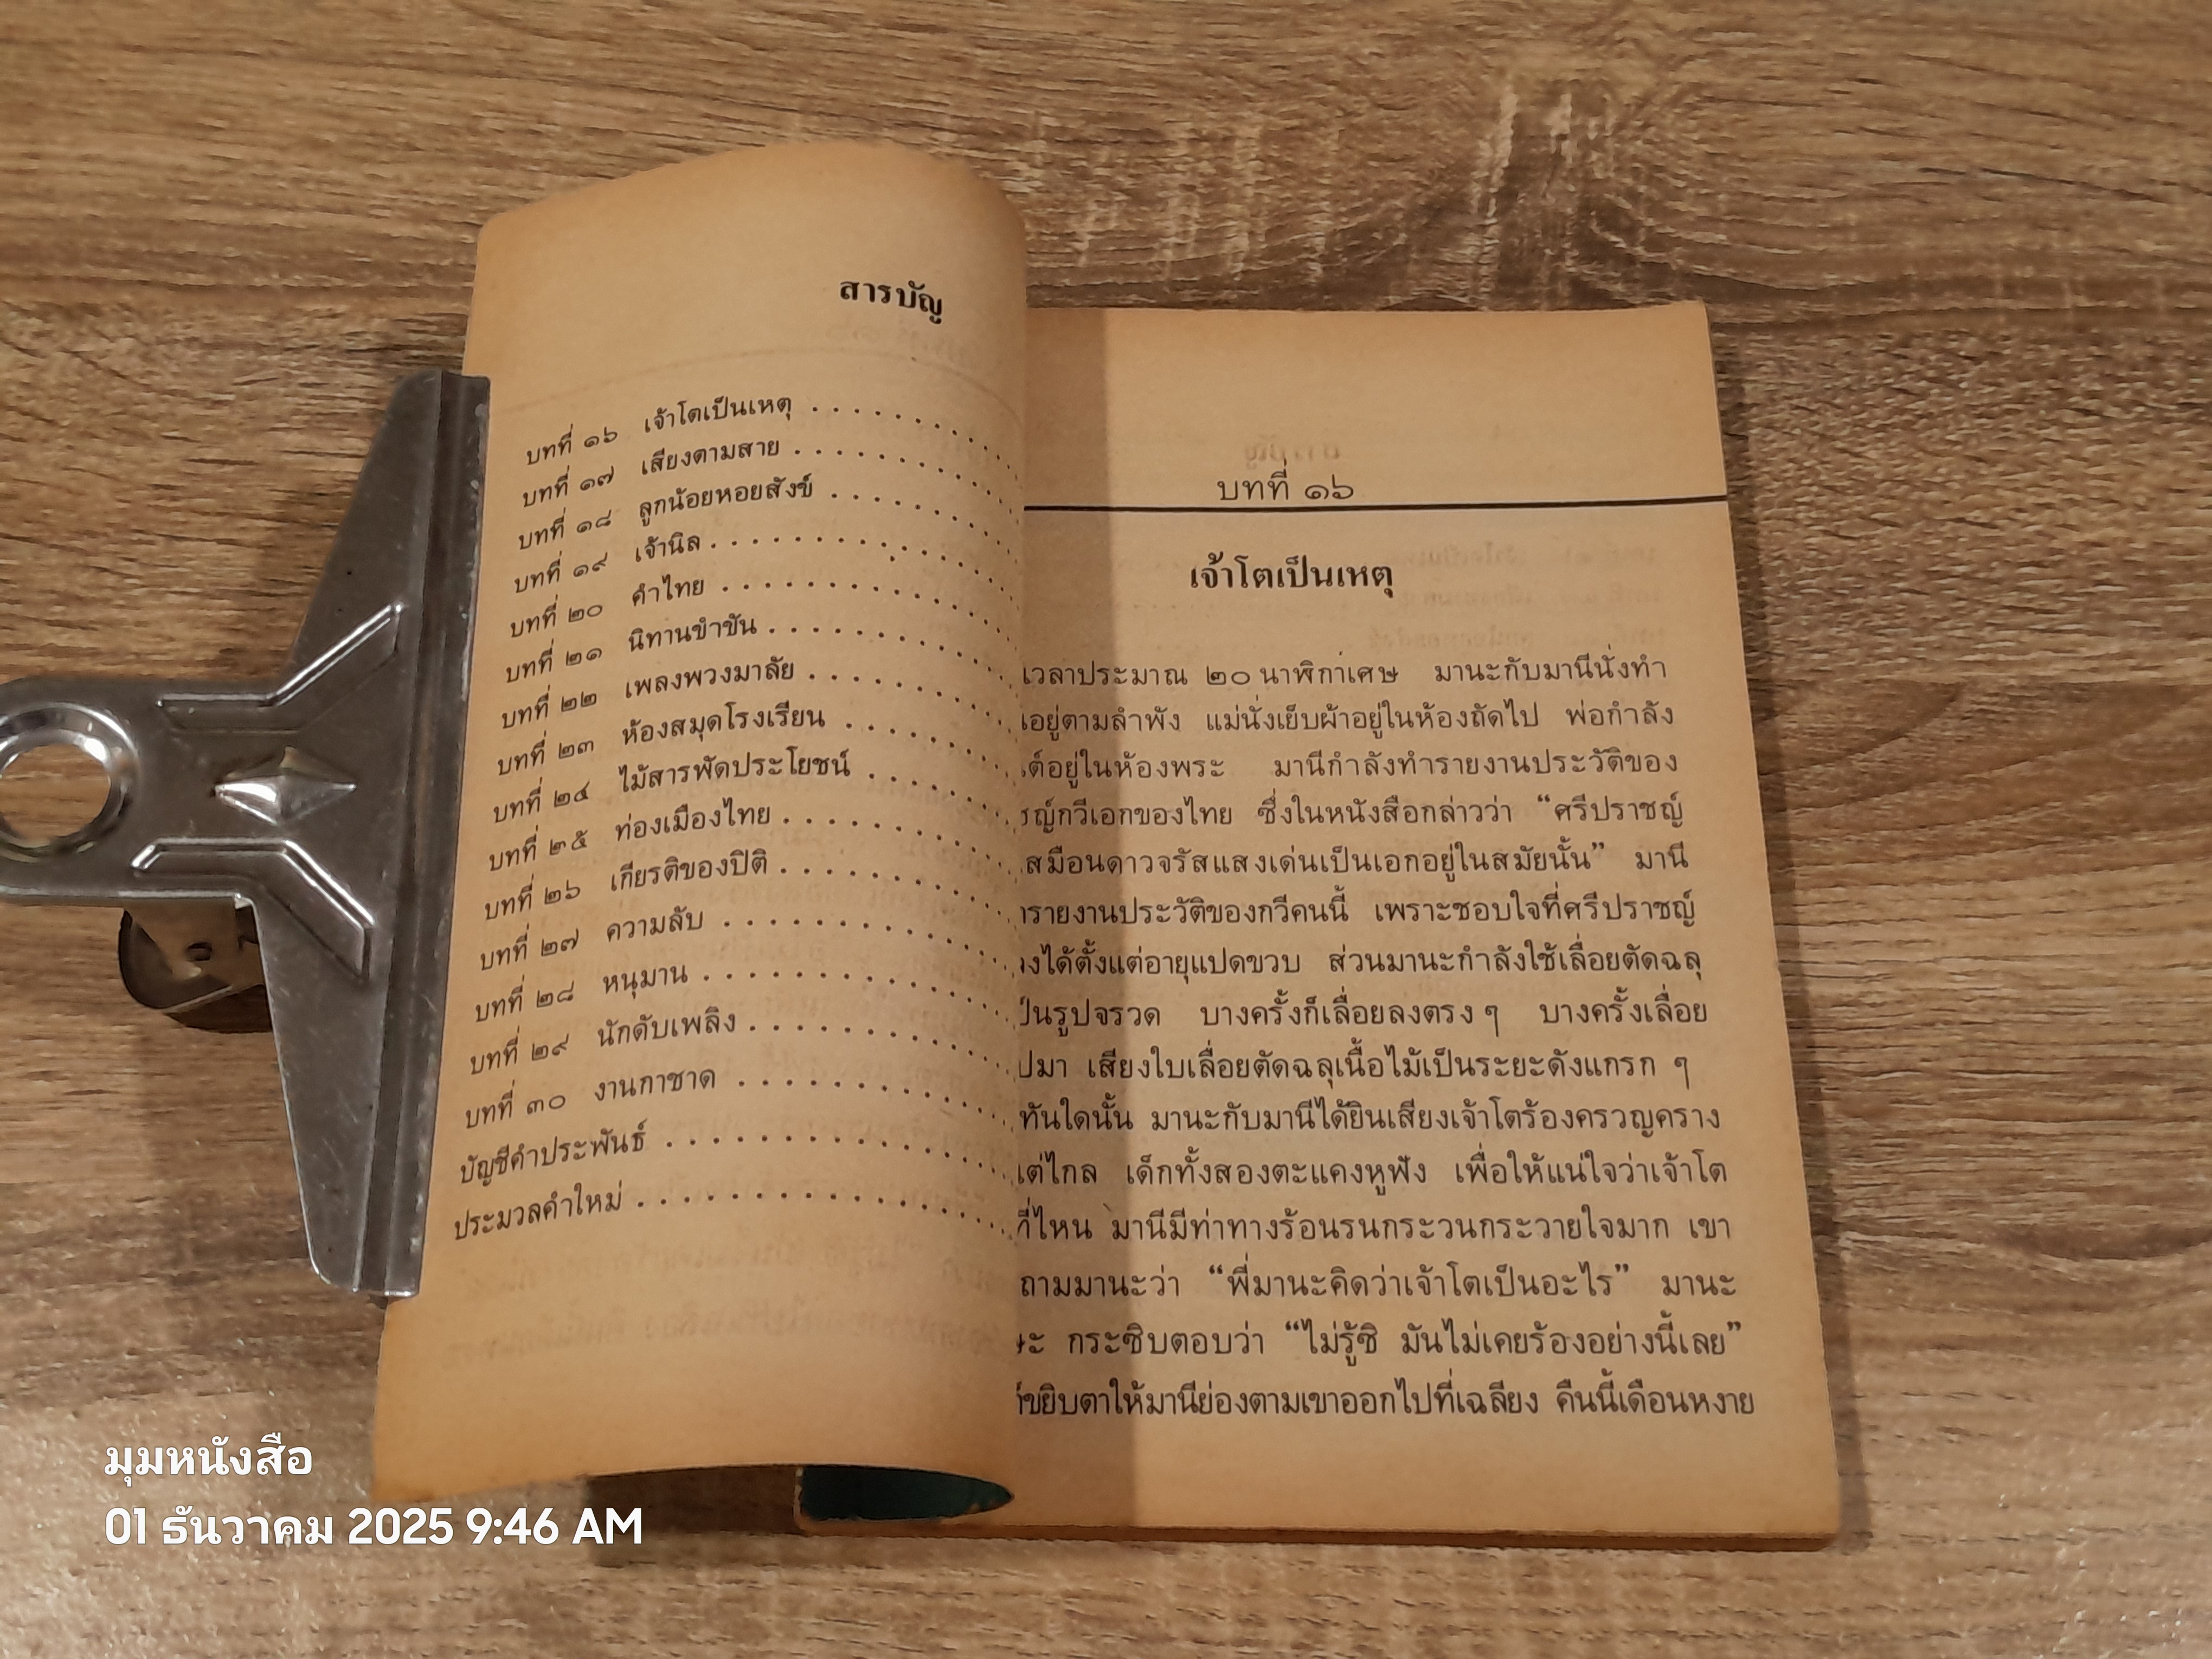 สารบัญ
บทที่ ๑๖ เจ้าโตเป็นเหตุ . . . . . . . . . .
บทที่ ๑๗ เสียงตามสาย . . . . . . . . . .
บทที่ ๑๘ ลูกน้อยหอยสังข์ . . . . . . . . .
บทที่ ๑๙ เจ้านิล . . . . . . . . . . . . .
บทที่ ๒๐ คำไทย . . . . . . . . . . . . .
บทที่ ๒๑ นิทานขำขัน . . . . . . . . . . .
บทที่ ๒๒ เพลงพวงมาลัย . . . . . . . . . .
บทที่ ๒๓ ห้องสมุดโรงเรียน . . . . . . . . .
บทที่ ๒๔ ไม้สารพัดประโยชน์ . . . . . . . .
บทที่ ๒๕ ท่องเมืองไทย . . . . . . . . . .
บทที่ ๒๖ เกียรติของปิติ . . . . . . . . . .
บทที่ ๒๗ ความลับ . . . . . . . . . . . .
บทที่ ๒๘ หนุมาน . . . . . . . . . . . . .
บทที่ ๒๙ นักดับเพลิง . . . . . . . . . . .
บทที่ ๓๐ งานกาชาด . . . . . . . . . . .
บัญชีคำประพันธ์ . . . . . . . . . . . . .
ประมวลคำใหม่ . . . . . . . . . . . . . .
บทที่ ๑๖
เจ้าโตเป็นเหตุ
เวลาประมาณ ๒๐ นาฬิกาเศษ มานะกับมานีนั่งทำ
อยู่ตามลำพัง แม่นั่งเย็บผ้าอยู่ในห้องถัดไป พ่อกำลัง
อยู่ในห้องพระ มานีกำลังทำรายงานประวัติของ
กวีเอกของไทย ซึ่งในหนังสือกล่าวว่า “ศรีปราชญ์
เสมือนดาวจรัสแสงเด่นเป็นเอกอยู่ในสมัยนั้น” มานี
รายงานประวัติของกวีคนนี้ เพราะชอบใจที่ศรีปราชญ์
ได้ตั้งแต่อายุแปดขวบ ส่วนมานะกำลังใช้เลื่อยตัดฉลุ
เป็นรูปจรวด บางครั้งก็เลื่อยลงตรง ๆ บางครั้งเลื่อย
มา เสียงใบเลื่อยตัดฉลุเนื้อไม้เป็นระยะดังแกรก ๆ
ทันใดนั้น มานะกับมานีได้ยินเสียงเจ้าโตร้องครวญคราง
แต่ไกล เด็กทั้งสองตะแคงหูฟัง เพื่อให้แน่ใจว่าเจ้าโต
ที่ไหน มานีมีท่าทางร้อนรนกระวนกระวายใจมาก เขา
ถามมานะว่า “พี่มานะคิดว่าเจ้าโตเป็นอะไร” มานะ
กระซิบตอบว่า “ไม่รู้ซิ มันไม่เคยร้องอย่างนี้เลย”
ขยิบตาให้มานีย่องตามเขาออกไปที่เฉลียง คืนนี้เดือนหงาย
มุมหนังสือ
01 ธันวาคม 2025 9:46 AM